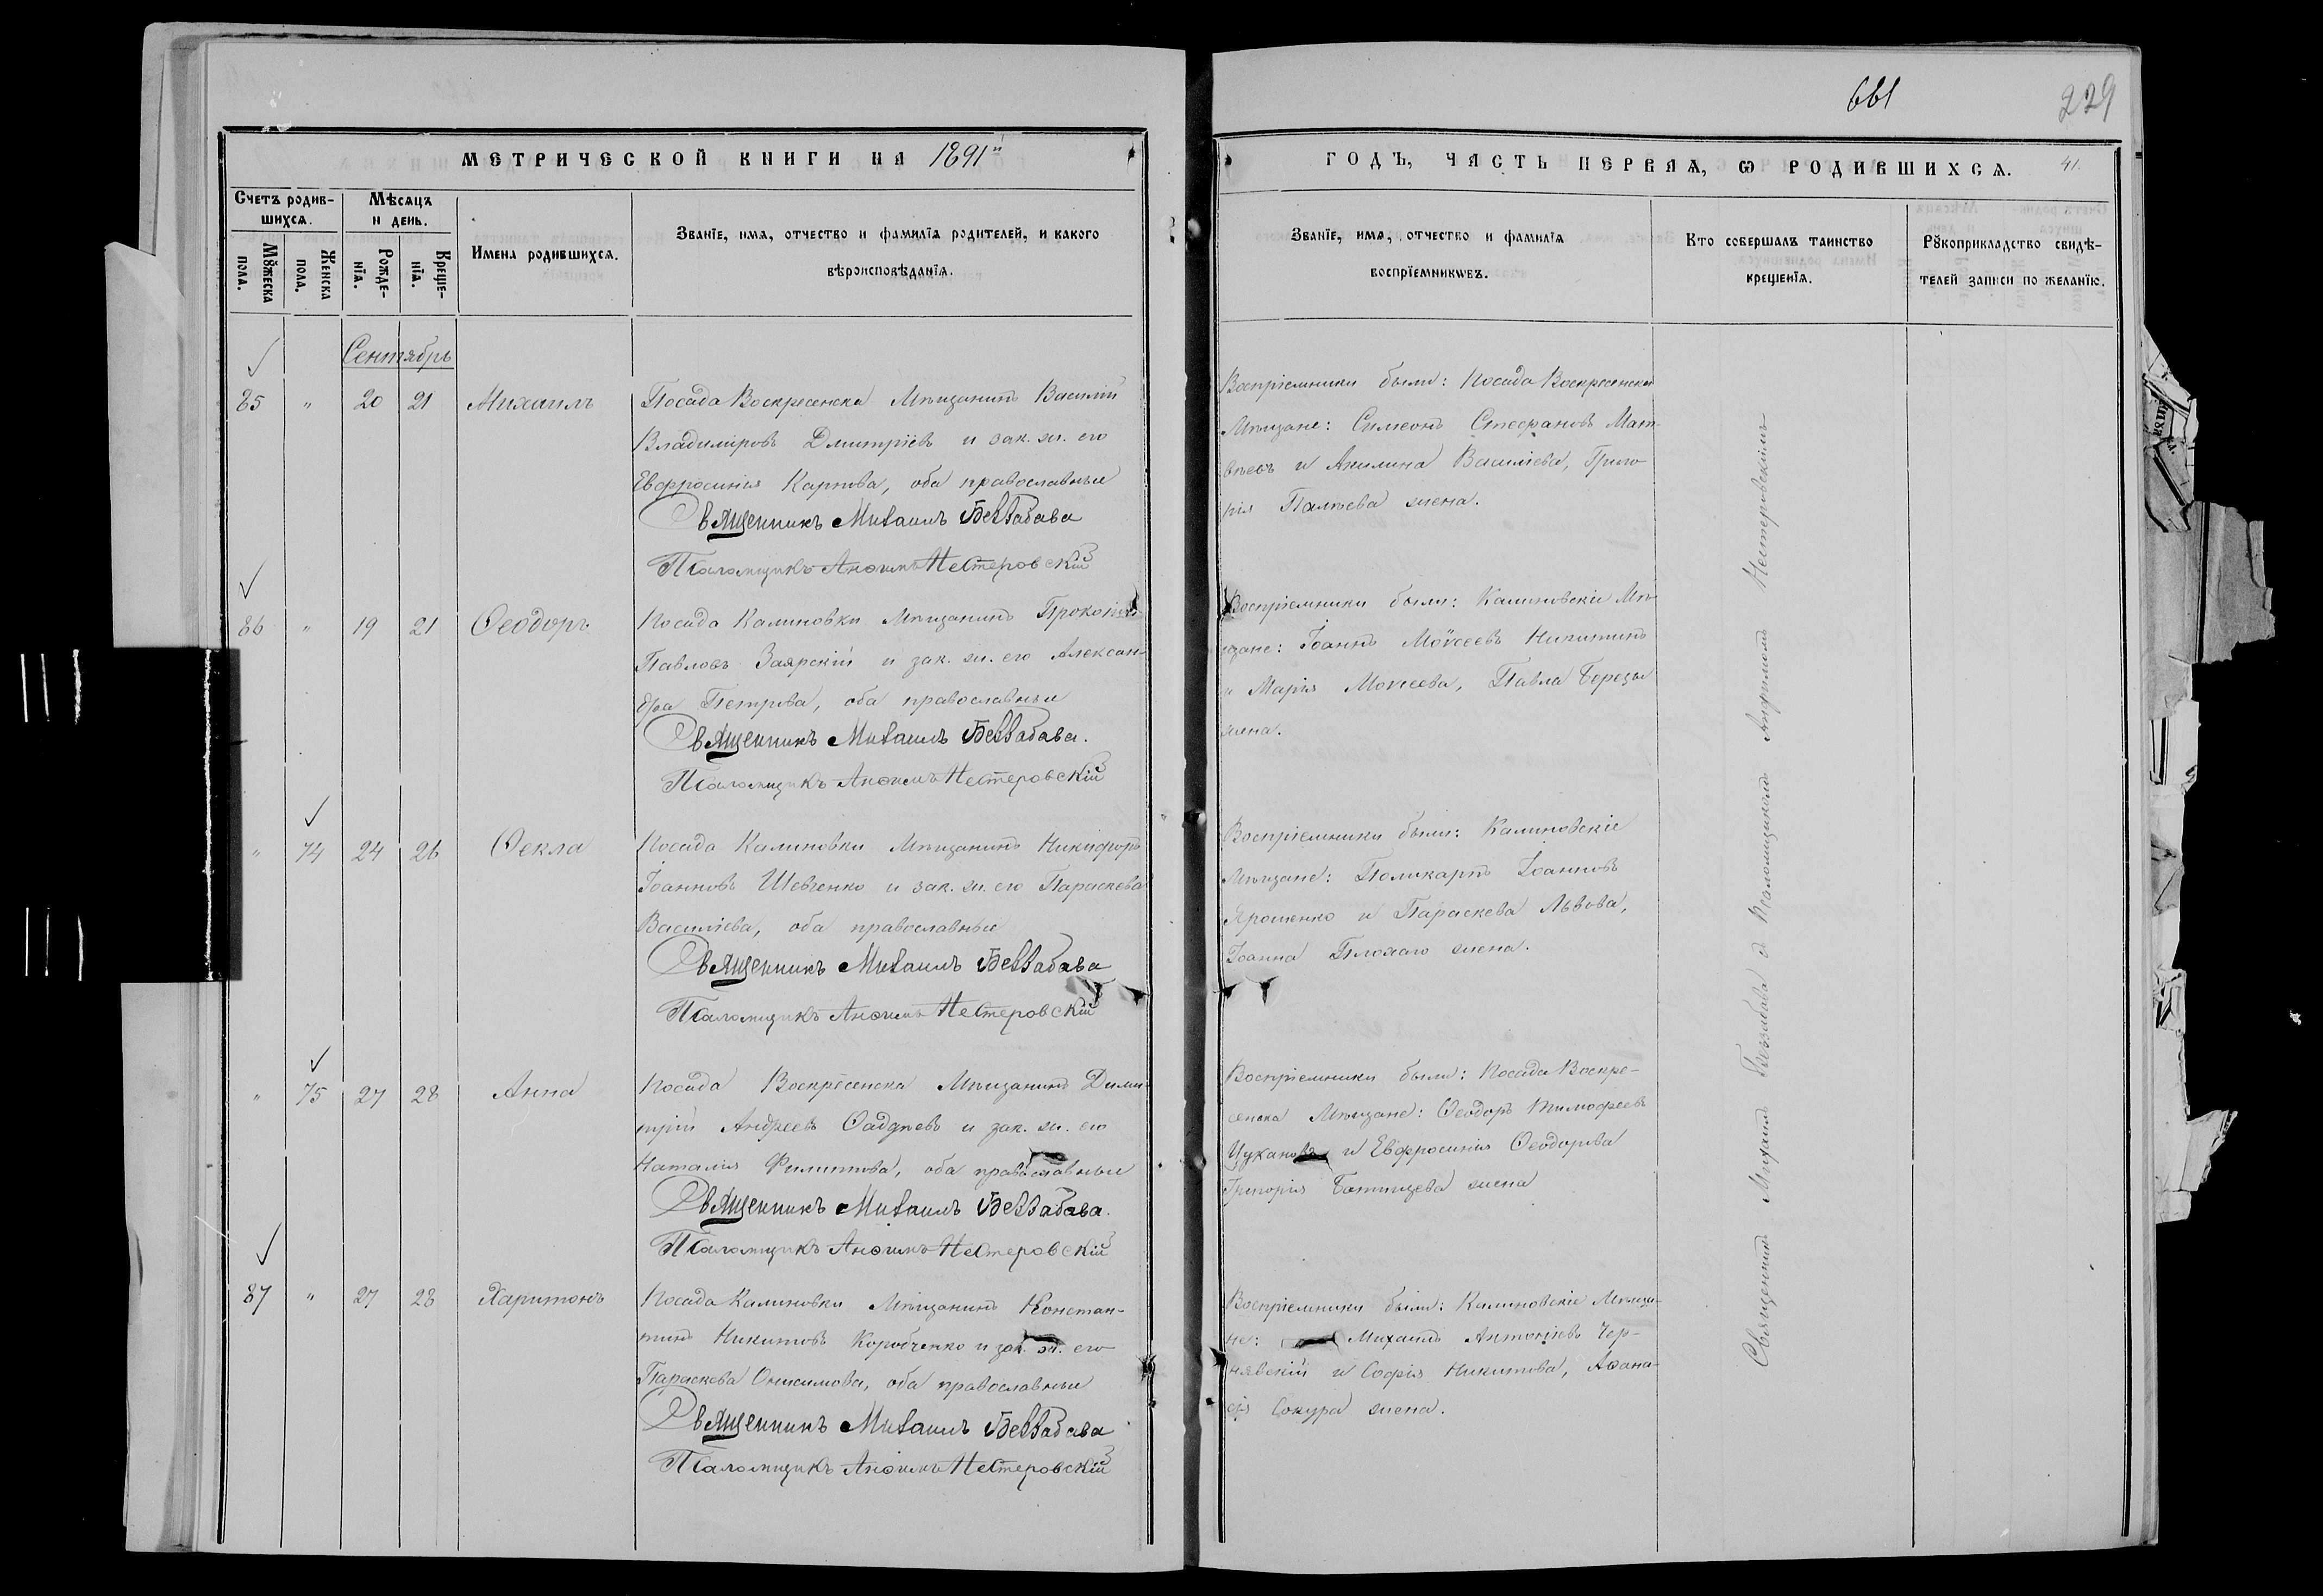 661
229
МЕТРИЧЕСКОЙ КНИГИ НА 1891й
ГОДЪ, ЧАСТЬ ПЕРВАЯ, Ѡ РОДИВШИХСѦ. 41.
Счетъ родив-
шихсѧ.
Мѣсяцъ
и день.
Мꙋжеска
пола.
Женска
пола.
Рожде-
нїѧ.
Креще-
нїѧ.
Имена родившихсѧ.
Званїе, имѧ, отчество и фамилїѧ родителей, и какого
вѣроисповѣданїѧ.
Званїе, имѧ, отчество и фамилїѧ
воспрїемникѡвъ.
Кто совершалъ таинство
крещенїѧ.
Рꙋкоприкладство свидѣ-
телей записи по желанїю.
Сентябрь
85 " 20 21 Михаилъ
Посада Воскресенска Мѣщанинъ Василій
Владиміровъ Дмитріевъ и зак. ж. его
Евфросинія Карпова, оба православные
Священникъ Михаилъ Беззабава
Псаломщикъ Анѳимъ Нестеровскій
Воспріемники были: Посада Воскресенска
Мѣщане: Симеонъ Стефановъ Мат-
вѣевъ и Акилина Василіева, Григо-
рія Палѣева жена.
86 " 19 21 Ѳеодоръ
Посада Калиновки Мѣщанинъ Прокопій
Павловъ Заярскій и зак. ж. его Алексан-
дра Петрова, оба православные
Священникъ Михаилъ Беззабава.
Псаломщикъ Анѳимъ Нестеровскій
Воспріемники были: Калиновскіе Мѣ-
щане: Іоаннъ Моѵсеевъ Никитинъ
и Марія Моисеева, Павла Березы
жена.
" 74 24 26 Ѳекла
Посада Калиновки Мѣщанинъ Никифоръ
Іоанновъ Шевченко и зак. ж. его Параскева
Василіева, оба православные
Священникъ Михаилъ Беззабава
Псаломщикъ Анѳимъ Нестеровскій
Воспріемники были: Калиновскіе
Мѣщане: Поликарпъ Іоанновъ
Ярошенко и Параскева Львова,
Іоанна Плохаго жена.
" 75 27 28 Анна
Посада Воскресенска Мѣщанинъ Дими-
трій Андреевъ Ѳаддѣевъ и зак. ж. его
Наталія Филиппова, оба православные
Священникъ Михаилъ Беззабава.
Псаломщикъ Анѳимъ Нестеровскій
Воспріемники были: Посада Воскре-
сенска Мѣщане: Ѳеодоръ Тимофеевъ
Цукановъ и Евфросинія Ѳеодорова
Григорія Батищева жена
87 " 27 28 Харитонъ
Посада Калиновки Мѣщанинъ Констан-
тинъ Никитовъ Коробченко и зак. ж. его
Параскева Онисимова, оба православные
Священникъ Михаилъ Беззабава
Псаломщикъ Анѳимъ Нестеровскій
Воспріемники были: Калиновскіе Мѣща-
не: Михаилъ Антоніевъ Чер-
нявскій и Софія Никитова, Аѳана-
сія Сокура жена.
Священникъ Михаилъ Беззабава съ Псаломщикомъ Анфимомъ Нестеровскимъ